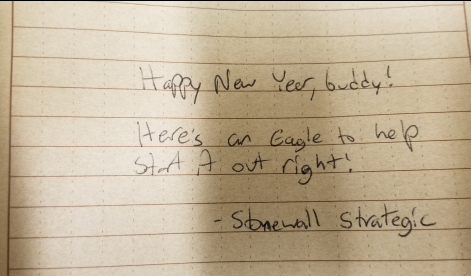 Happy New Year, buddy!
Here's an Eagle to help
start it out right!
- Stonewall Strategic